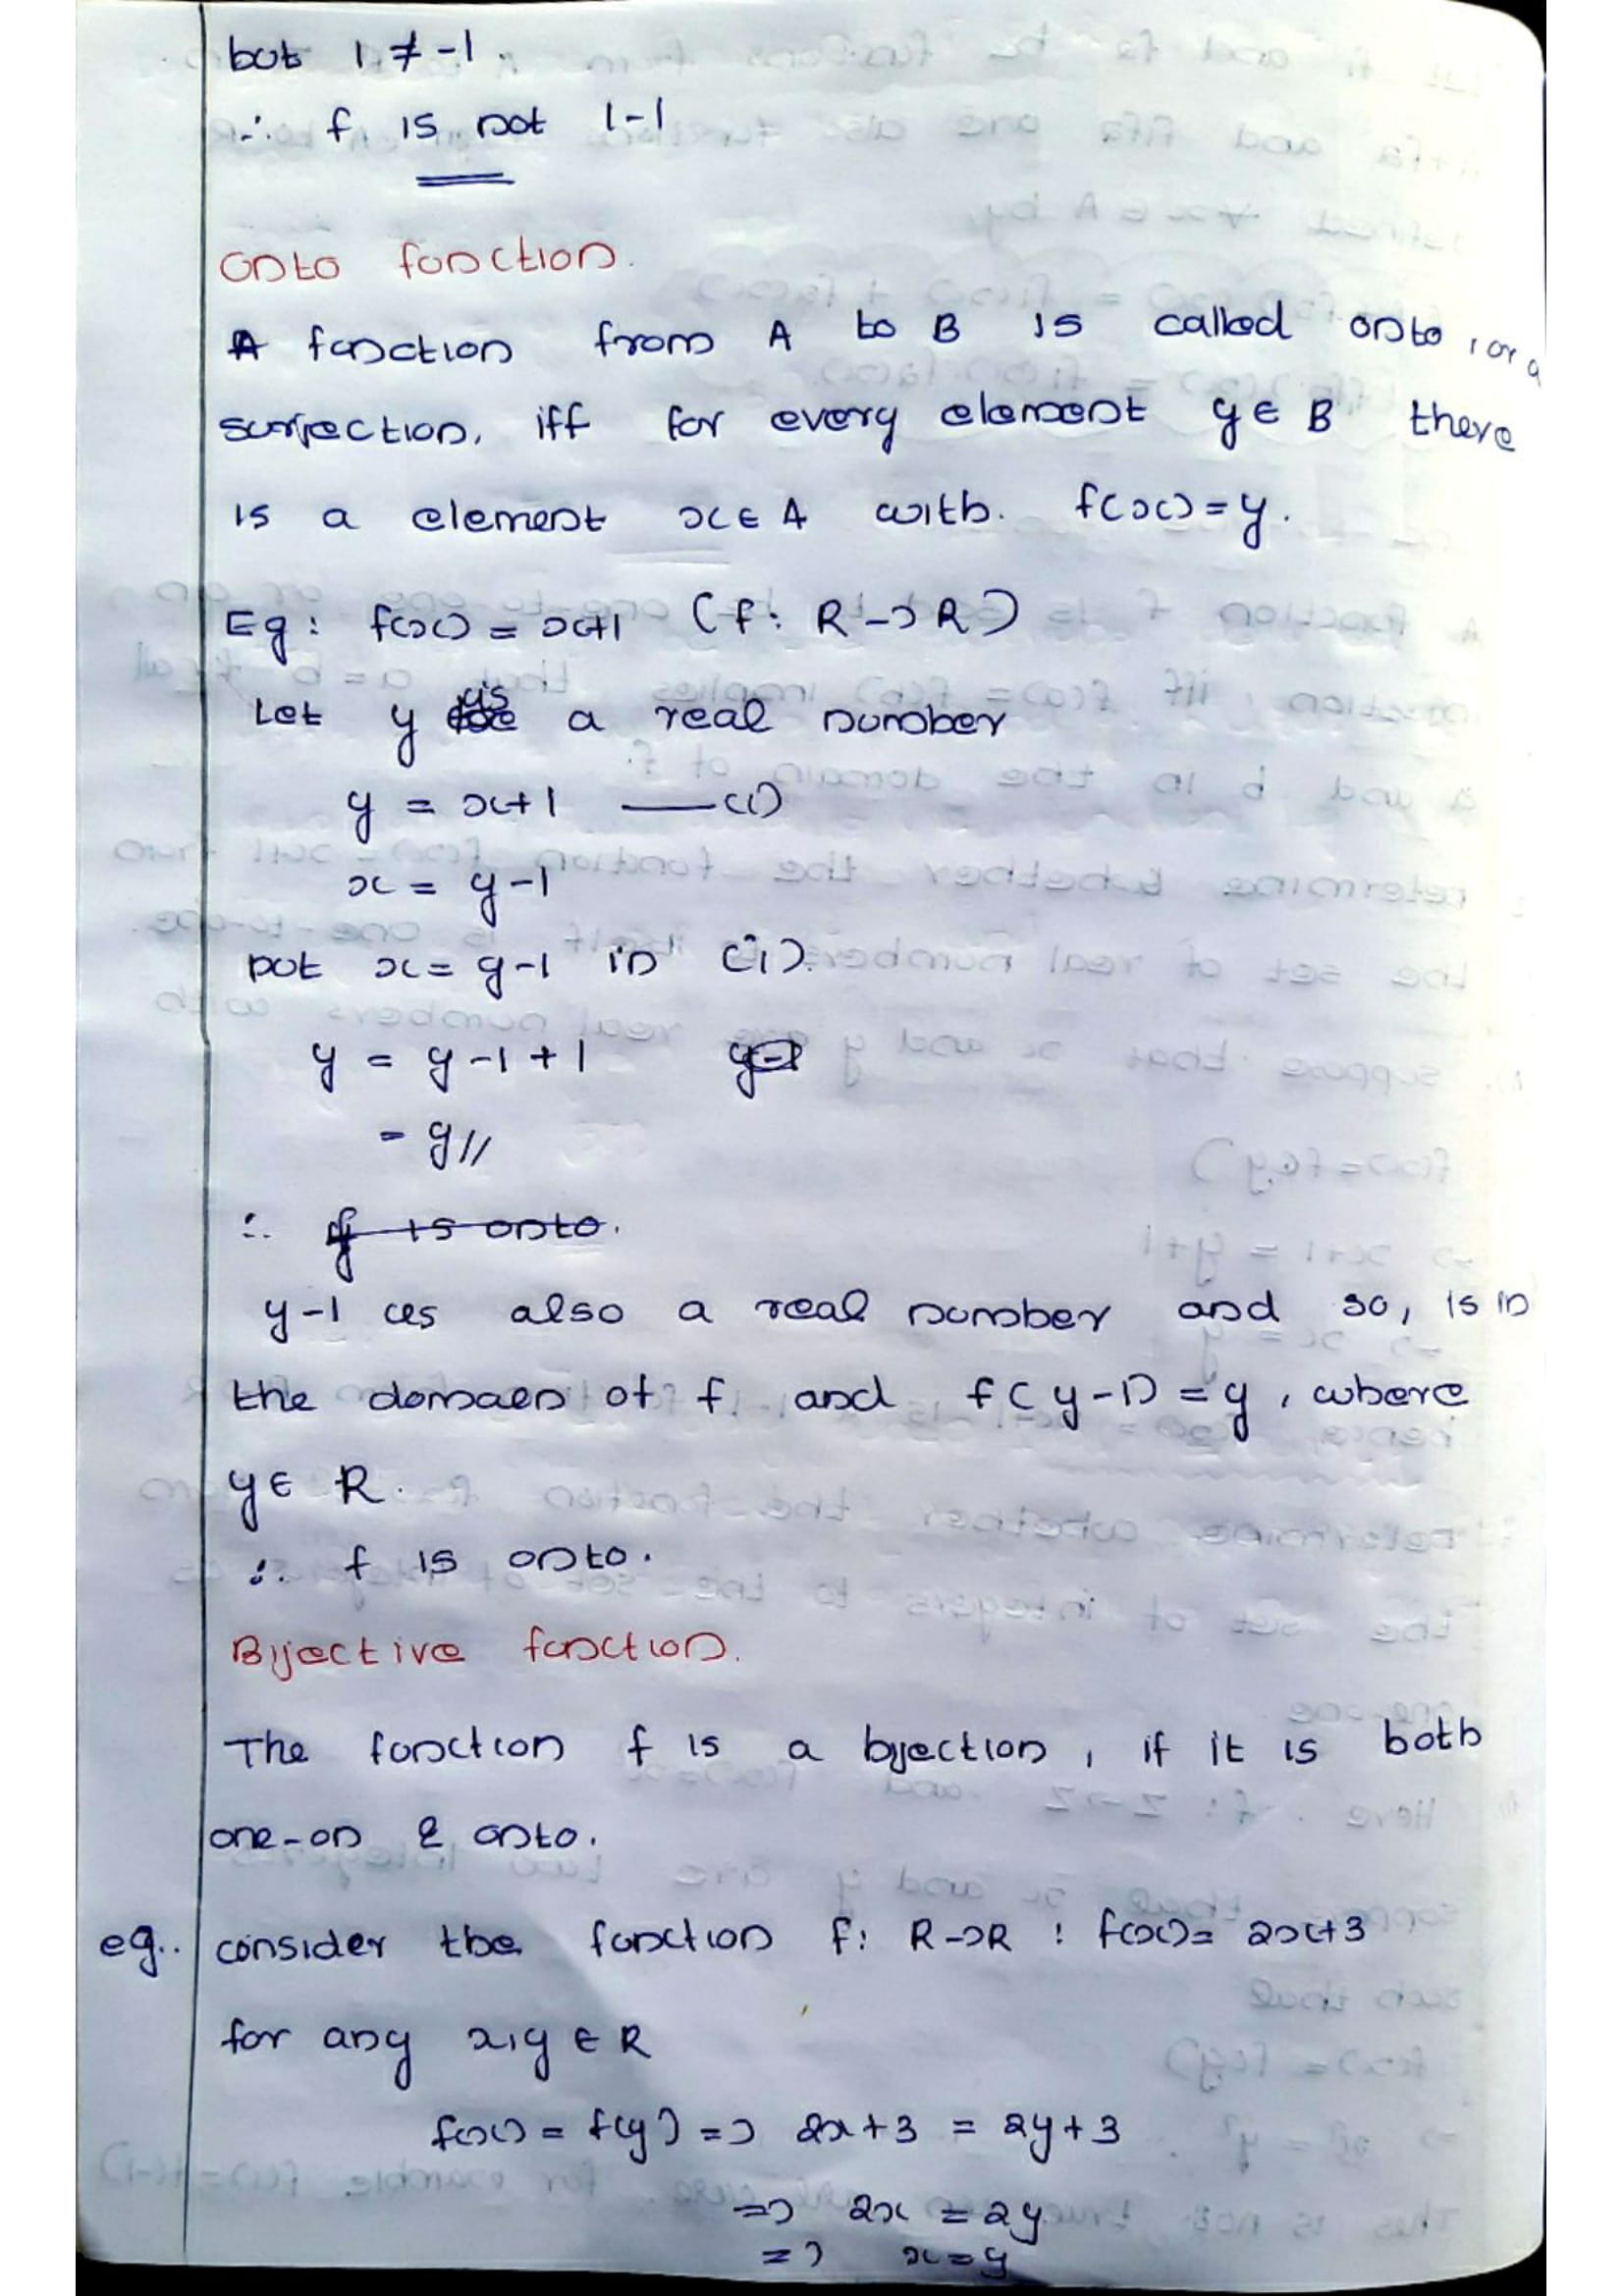 but 1 ≠ -1.
∴ f is not 1-1
Onto function.
A function from A to B is called onto, or a
surjection, iff for every element y ∈ B there
is a element x ∈ A with. f(x) = y.
Eg: f(x) = x+1 (f: R → R)
Let y is a real number
y = x+1 —— (1)
x = y-1
put x = y-1 in (1).
y = y-1+1
= y//
∴ f is onto.
y-1 is also a real number and so, is in
the domain of f and f(y-1) = y, where
y ∈ R.
∴ f is onto.
Bijective function.
The function f is a bijection, if it is both
one-on & onto.
eg.. consider the function f: R→R : f(x) = 2x+3
for any x,y ∈ R
f(x) = f(y) => 2x+3 = 2y+3
=> 2x = 2y
=> x = y